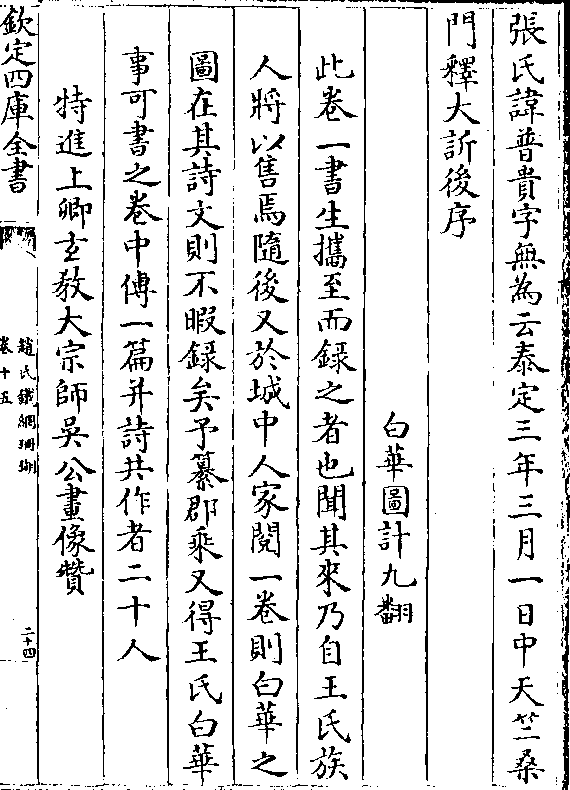 張氏諱普貴字無為云泰定三年三月一日中天竺桑
門釋大訢後序
白華圖計九翻
此卷一書生攜至而録之者也聞其來乃自王氏族
人將以售焉隨後又於城中人家閱一卷則白華之
圖在其詩文則不暇録矣予纂郡乘又得王氏白華
事可書之卷中傳一篇并詩共作者二十人
特進上卿玄教大宗師吳公畫像贊
欽定四庫全書
趙氏鐵網珊瑚
卷十五
二十四